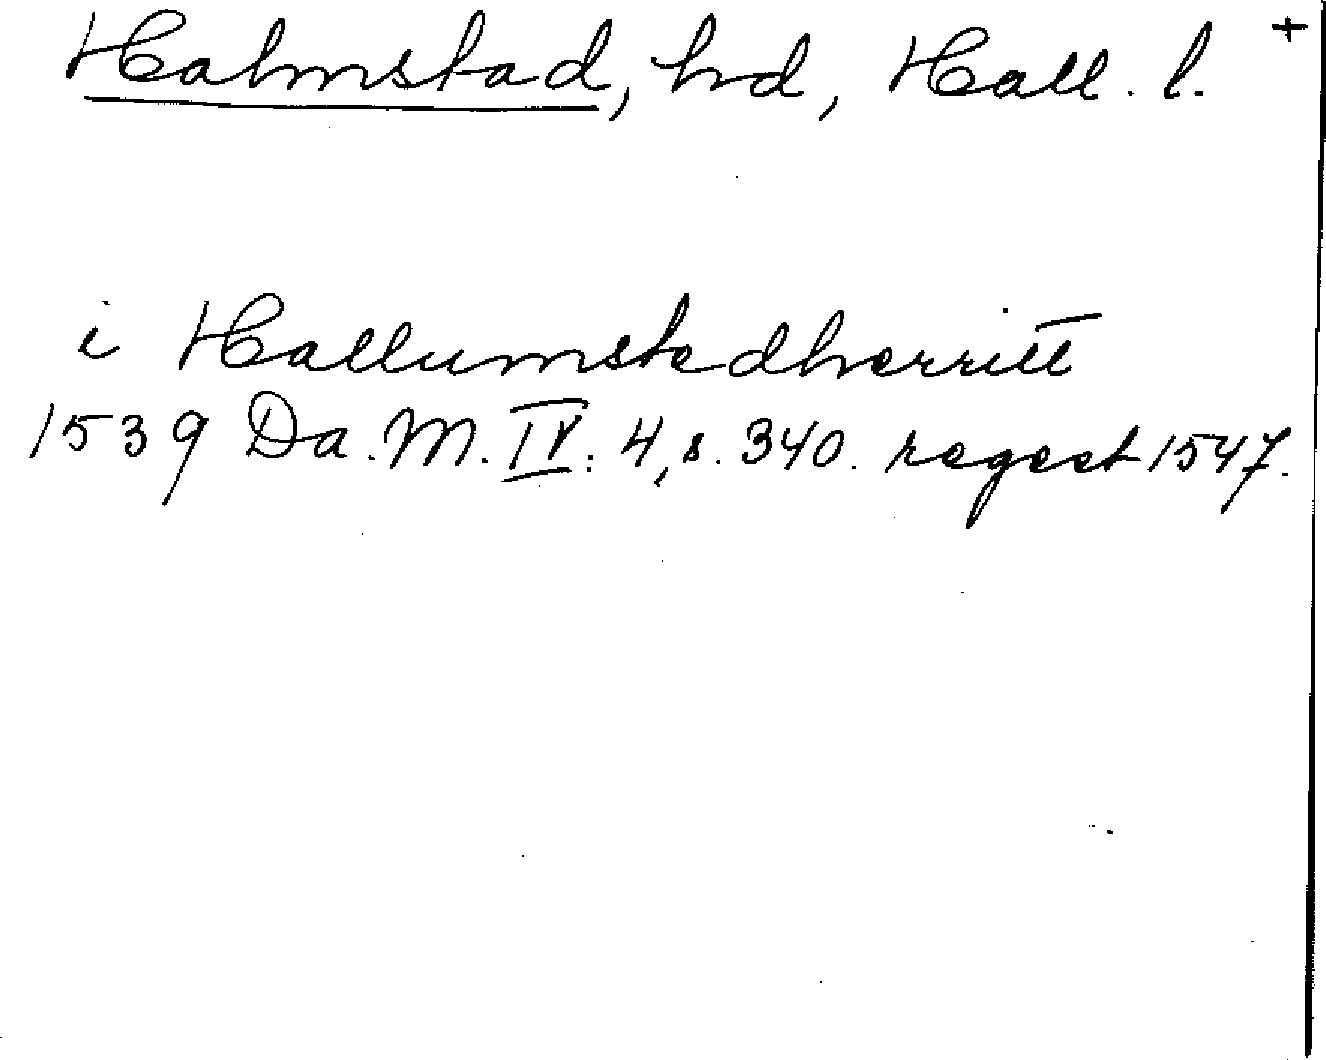 Halmstad, hd, Hall. l. +
i Hallumstedherritt
1539 Da. M. IV. 4, s. 340. regest 1547.